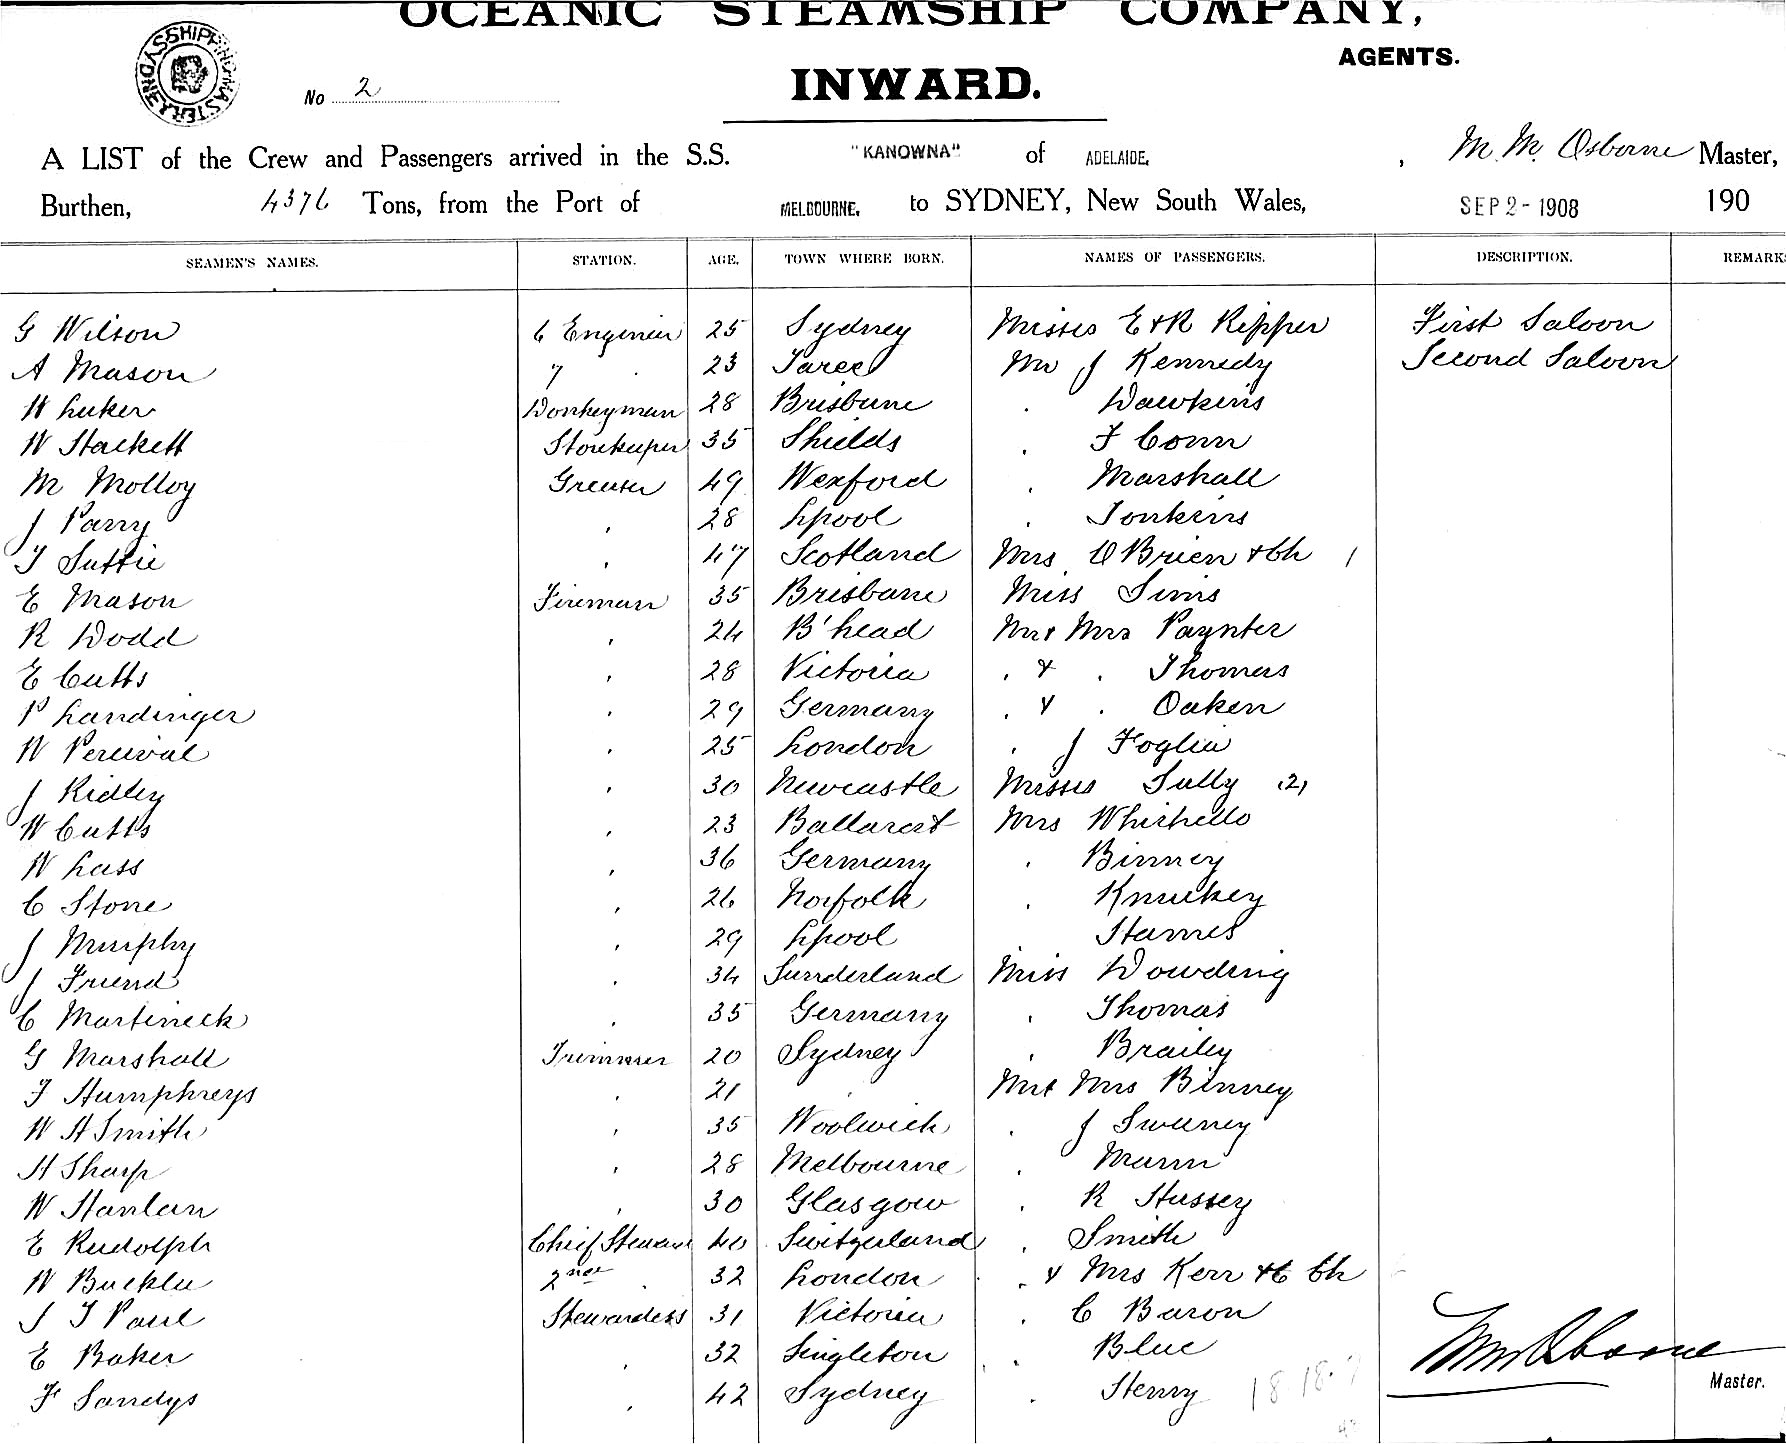 OCEANIC STEAMSHIP COMPANY,
AGENTS.
SHIPPING MASTER SYDNEY
No 2
INWARD.
A LIST of the Crew and Passengers arrived in the S.S. "KANOWNA" of ADELAIDE, , M. M. Osborne Master,
Burthen, 4376 Tons, from the Port of MELBOURNE, to SYDNEY, New South Wales, SEP 2 - 1908 190
SEAMEN'S NAMES. STATION. AGE. TOWN WHERE BORN. NAMES OF PASSENGERS. DESCRIPTION. REMARKS
G Wilson 6 Engineer 25 Sydney Misses E & R Kipper First Saloon
A Mason 7 23 Taree Mr J Kennedy Second Saloon
W Luker Donkeyman 28 Brisbane . Dawkins
W Hackett Storekeeper 35 Shields . F Conn
M Molloy Greaser 49 Wexford . Marshall
J Parry , 28 Lpool . Jonkins
T Suttie , 47 Scotland Mrs O'Brien & Ch 1
E Mason Fireman 35 Brisbane Miss Sims
R Dodd , 24 B'head Mr & Mrs Paynter
E Cutts , 28 Victoria . & . Thomas
P Landinger , 29 Germany . & . Oaken
W Percival , 25 London . J Foglia
J Ridley , 30 Newcastle Misses Sully (2)
W Cutts , 23 Ballarat Mrs Whichello
W Lass , 36 Germany . Binney
C Stone , 26 Norfolk . Knuckey
J Murphy , 29 Lpool Hames
J Friend , 34 Sunderland Miss Dowding
C Martineck , 35 Germany . Thomas
G Marshall Trimmer 20 Sydney . Brailey
F Humphreys , 21 . Mr & Mrs Binney
W H Smith , 35 Woolwich . J Sweeney
H Sharp , 28 Melbourne . Mann
W Hanlan , 30 Glasgow . R Hussey
E Rudolph Chief Steward 40 Switzerland . Smith
W Buckle 2nd . 32 London . & Mrs Kerr & 6 Ch
S J Paul Stewardess 31 Victoria . C Baron
E Baker , 32 Singleton . Blue
F Sandys , 42 Sydney . Henry 18 18
M M Osborne
Master.